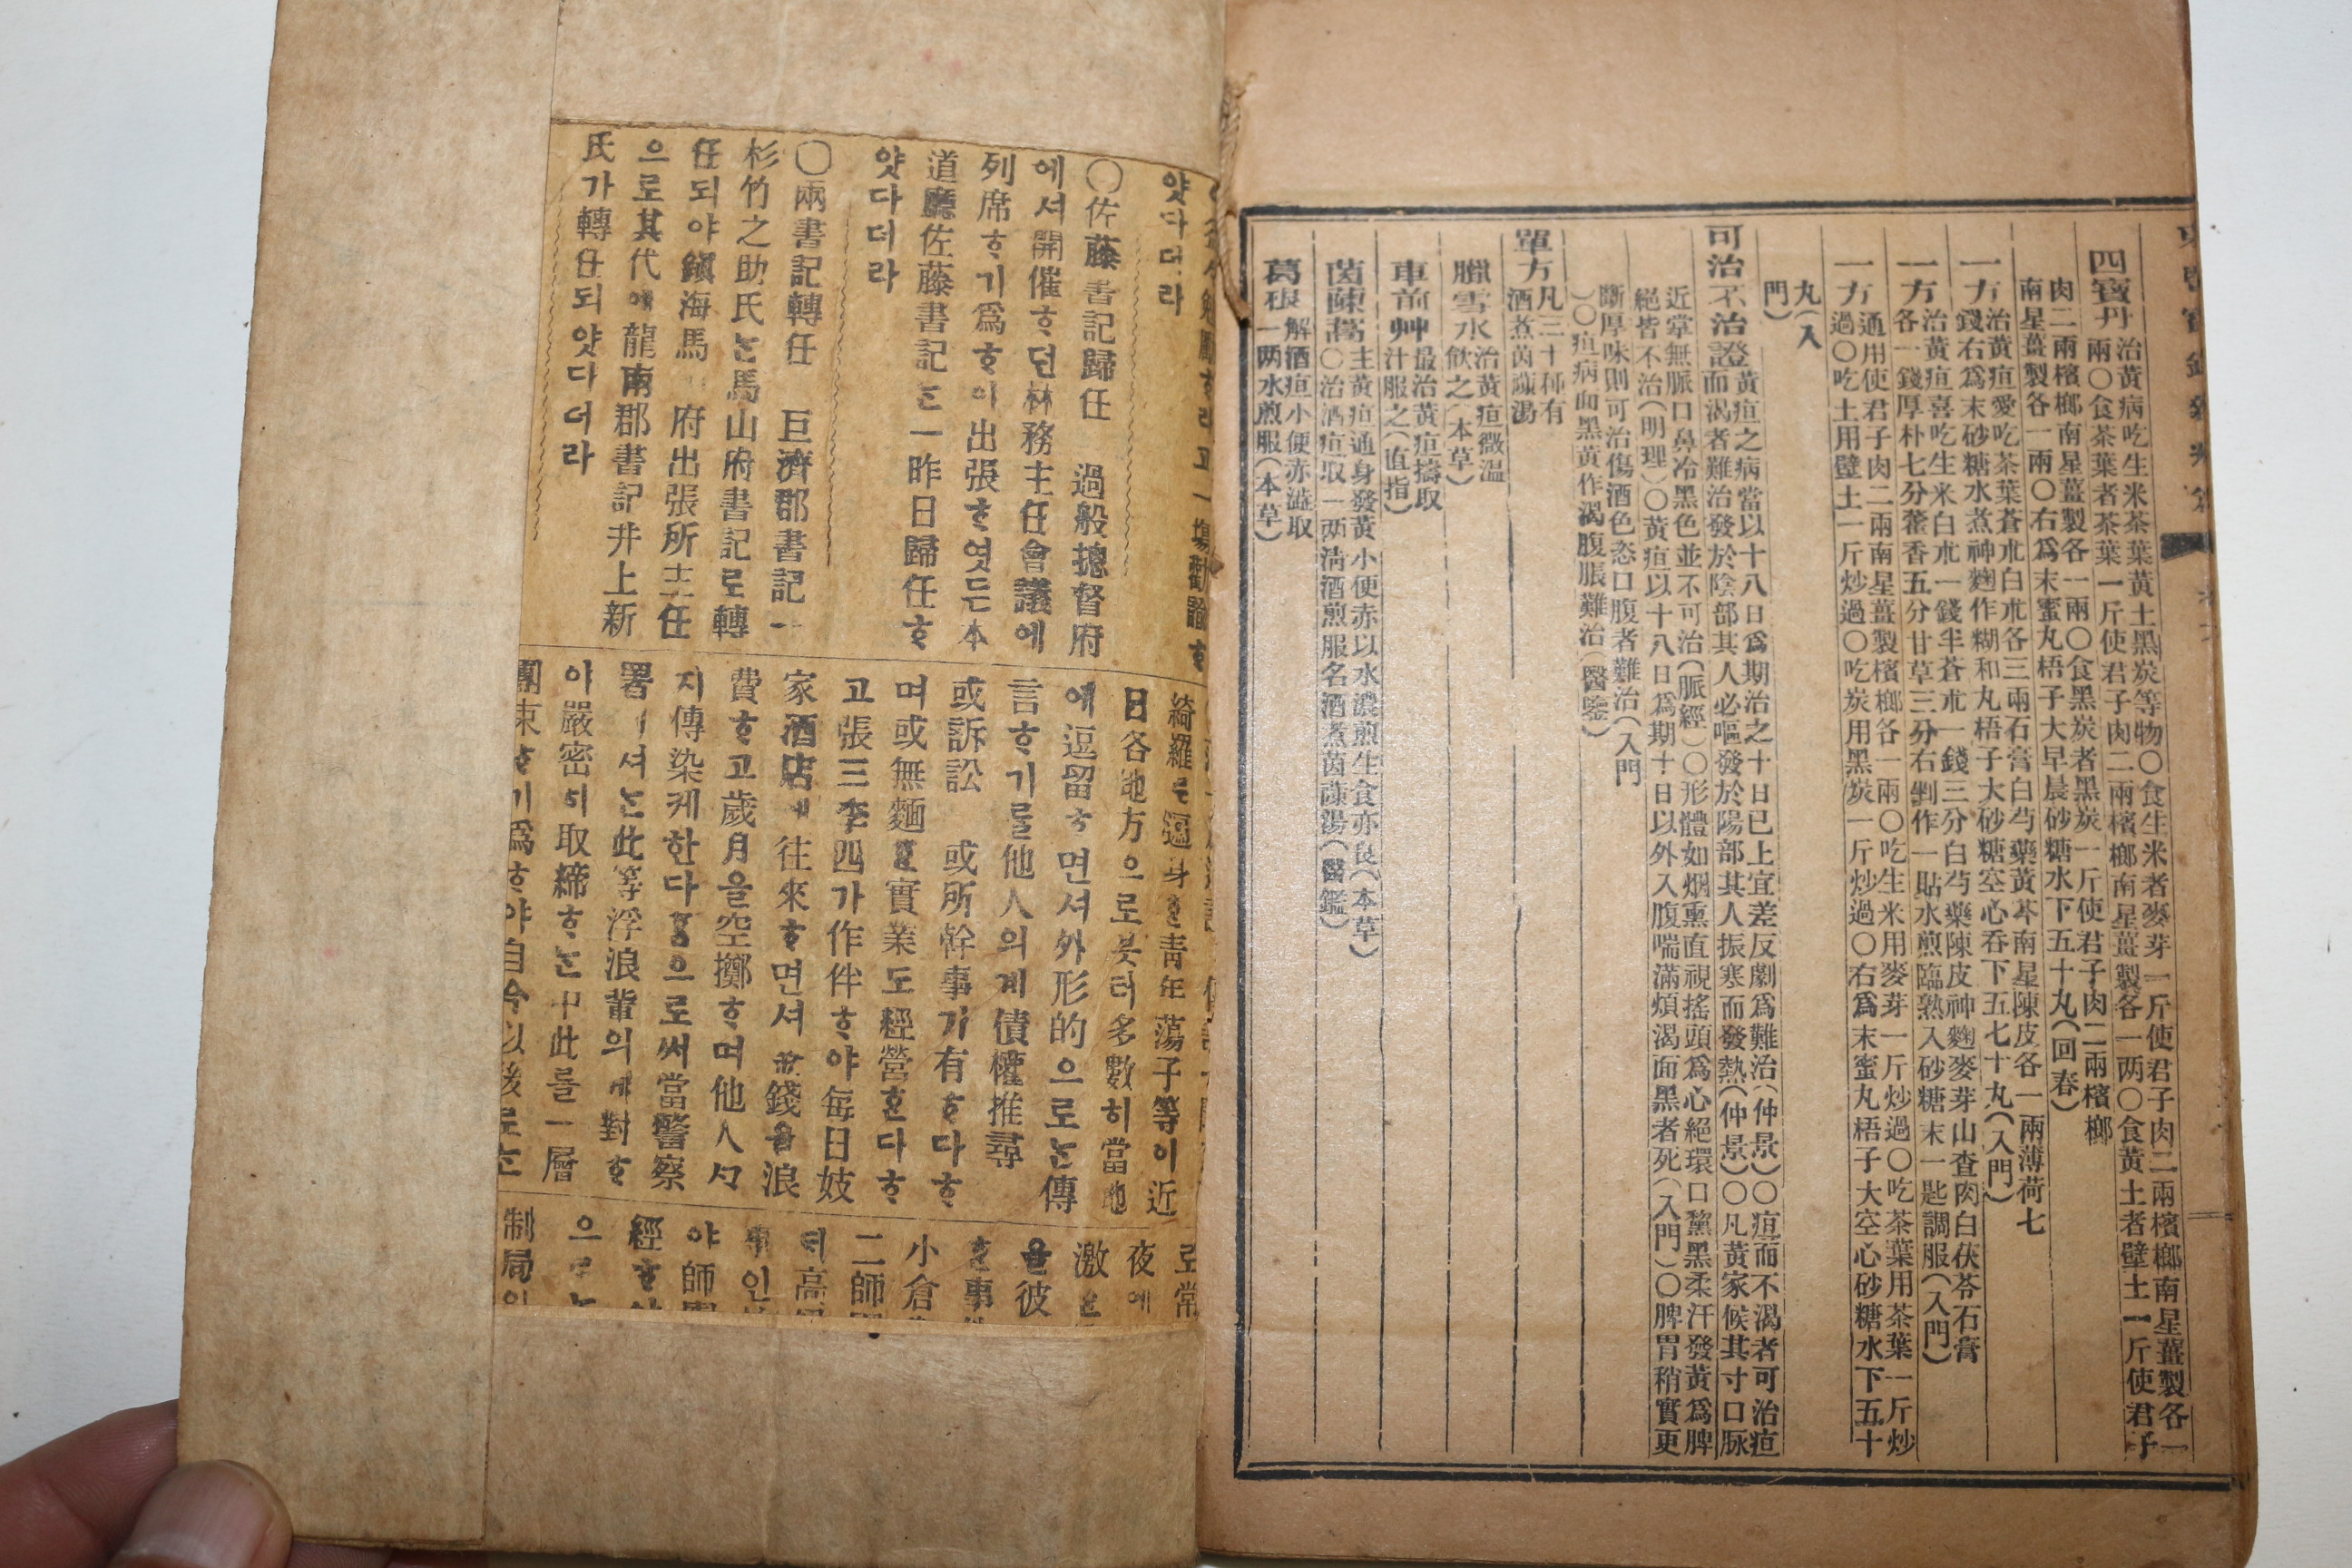 四寶丹治黃病吃生米茶葉黃土黑炭等物〇食生米者麥芽一斤使君子肉二兩檳榔南星薑製各一
兩〇食茶葉者茶葉一斤使君子肉二兩檳榔南星薑製各一兩〇食黃土者壁土一斤使君子
肉二兩檳榔南星薑製各一兩〇食黑炭者黑炭一斤使君子肉二兩檳榔
南星薑製各一兩〇右爲末蜜丸梧子大早晨砂糖水下五十丸(回春)
一方治黃疸愛吃茶葉蒼朮白朮各三兩石膏白芍藥黃芩南星陳皮各一兩薄荷七
錢右爲末砂糖水煮神麴作糊和丸梧子大砂糖空心吞下五七十丸(入門)
一方治黃疸喜吃生米白朮一錢半蒼朮一錢三分白芍藥陳皮神麴麥芽山査肉白茯苓石膏
各一錢厚朴七分藿香五分甘草三分右剉作一貼水煎臨熟入砂糖末一匙調服(入門)
一方通用使君子肉二兩南星薑製檳榔各一兩〇吃生米用麥芽一斤炒過〇吃茶葉用茶葉一斤炒
過〇吃土用壁土一斤炒過〇吃炭用黑炭一斤炒過〇右爲末蜜丸梧子大空心砂糖水下五十
丸(入
門)
可治不治證黃疸之病當以十八日爲期治之十日已上宜差反劇爲難治(仲景)〇疸而不渴者可治疸
而渴者難治發於陰部其人必嘔發於陽部其人振寒而發熱(仲景)〇凡黃家候其寸口脉
近掌無脈口鼻冷黑色並不可治(脈經)〇形體如烟熏直視搖頭爲心絕環口黧黑柔汗發黃爲脾
絕皆不治(明理)〇黃疸以十八日爲期十日以外入腹喘滿煩渴面黑者死(入門)〇脾胃稍實更
斷厚味則可治傷酒色恣口腹者難治(入門
)〇疸病面黑黃作渴腹脹難治(醫鑒)
單方凡三十種有
酒煮茵蔯湯
臘雪水治黃疸微溫
飮之(本草)
車前艸最治黃疸擣取
汁服之(直指)
茵蔯蒿主黃疸通身發黃小便赤以水濃煎生食亦良(本草)
〇治酒疸取一兩淸酒煎服名酒煮茵蔯湯(醫鑑)
葛根解酒疸小便赤澁取
一兩水煎服(本草)
얏다더라
〇佐藤書記歸任 過般摠督府
에셔開催ᄒᆞ던林務主任會議에
列席ᄒᆞ기爲ᄒᆞ야出張ᄒᆞ엿든本
道廳佐藤書記ᄂᆞᆫ一昨日歸任ᄒᆞ
얏다더라
〇兩書記轉任 巨濟郡書記一
杉竹之助氏ᄂᆞᆫ馬山府書記로轉
任되야鎭海馬 府出張所主任
으로其代에龍南郡書記井上新
氏가轉任되얏다더라
綺羅 身 靑年蕩子等이近
日各地方으로봇터多數히當地
에逗留ᄒᆞ면셔外形的으로ᄂᆞᆫ傳
言ᄒᆞ기를他人의게債權推尋
或訴訟 或所幹事가有ᄒᆞ다ᄒᆞ
며或無麵 實業도經營ᄒᆞᆫ다ᄒᆞ
고張三李四가作伴ᄒᆞ야每日妓
家酒店에往來ᄒᆞ면셔 錢을浪
費ᄒᆞ고歲月을空擲ᄒᆞ며他人
지傳染케한다 으로써當警察
署 셔ᄂᆞᆫ此等浮浪輩의 對ᄒᆞ
야嚴密히取締ᄒᆞᄂᆞᆫ中此를一層
團束ᄒᆞ기爲ᄒᆞ야自今以後로ᄂᆞᆫ
夜에
激
을彼
事
小倉
二師
高
人
야師
經ᄒᆞ
制局